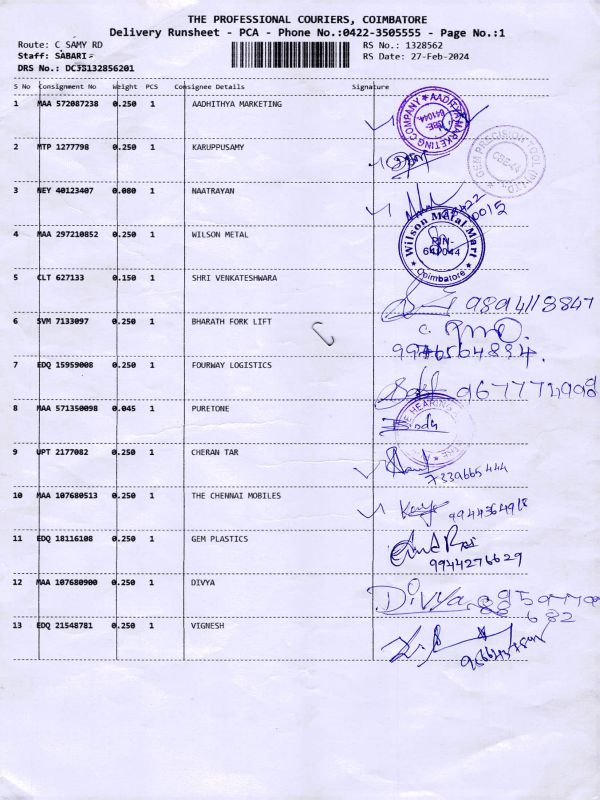 THE PROFESSIONAL COURIERS, COIMBATORE
Delivery Runsheet - PCA - Phone No.:0422-3505555 - Page No.:1
Route: C SAMY RD
RS No.: 1328562
Staff: SABARI-
RS Date: 27-Feb-2024
DRS No.: DCJB132856201
S No Consignment No Weight PCS Consignee Details Signature
1 MAA 572087238 0.250 1 AADHITHYA MARKETING
AADITYA MARKETING COMPANY
2 MTP 1277798 0.250 1 KARUPPUSAMY
GEM PRECISION TOOL
3 NEY 40123407 0.080 1 NAATRAYAN
0015
4 MAA 297210852 0.250 1 WILSON METAL
Wilson Metal Mart
PIN-
641044
Coimbatore
5 CLT 627133 0.150 1 SHRI VENKATESHWARA
9894118847
6 SVM 7133097 0.250 1 BHARATH FORK LIFT
7 EDQ 15959008 0.250 1 FOURWAY LOGISTICS
8 MAA 571350098 0.045 1 PURETONE
HEARING
9 UPT 2177082 0.250 1 CHERAN TAR
7339665444
10 MAA 107680513 0.250 1 THE CHENNAI MOBILES
11 EDQ 18116108 0.250 1 GEM PLASTICS
9944276629
12 MAA 107680900 0.250 1 DIVYA
Divya
682
13 EDQ 21548781 0.250 1 VIGNESH